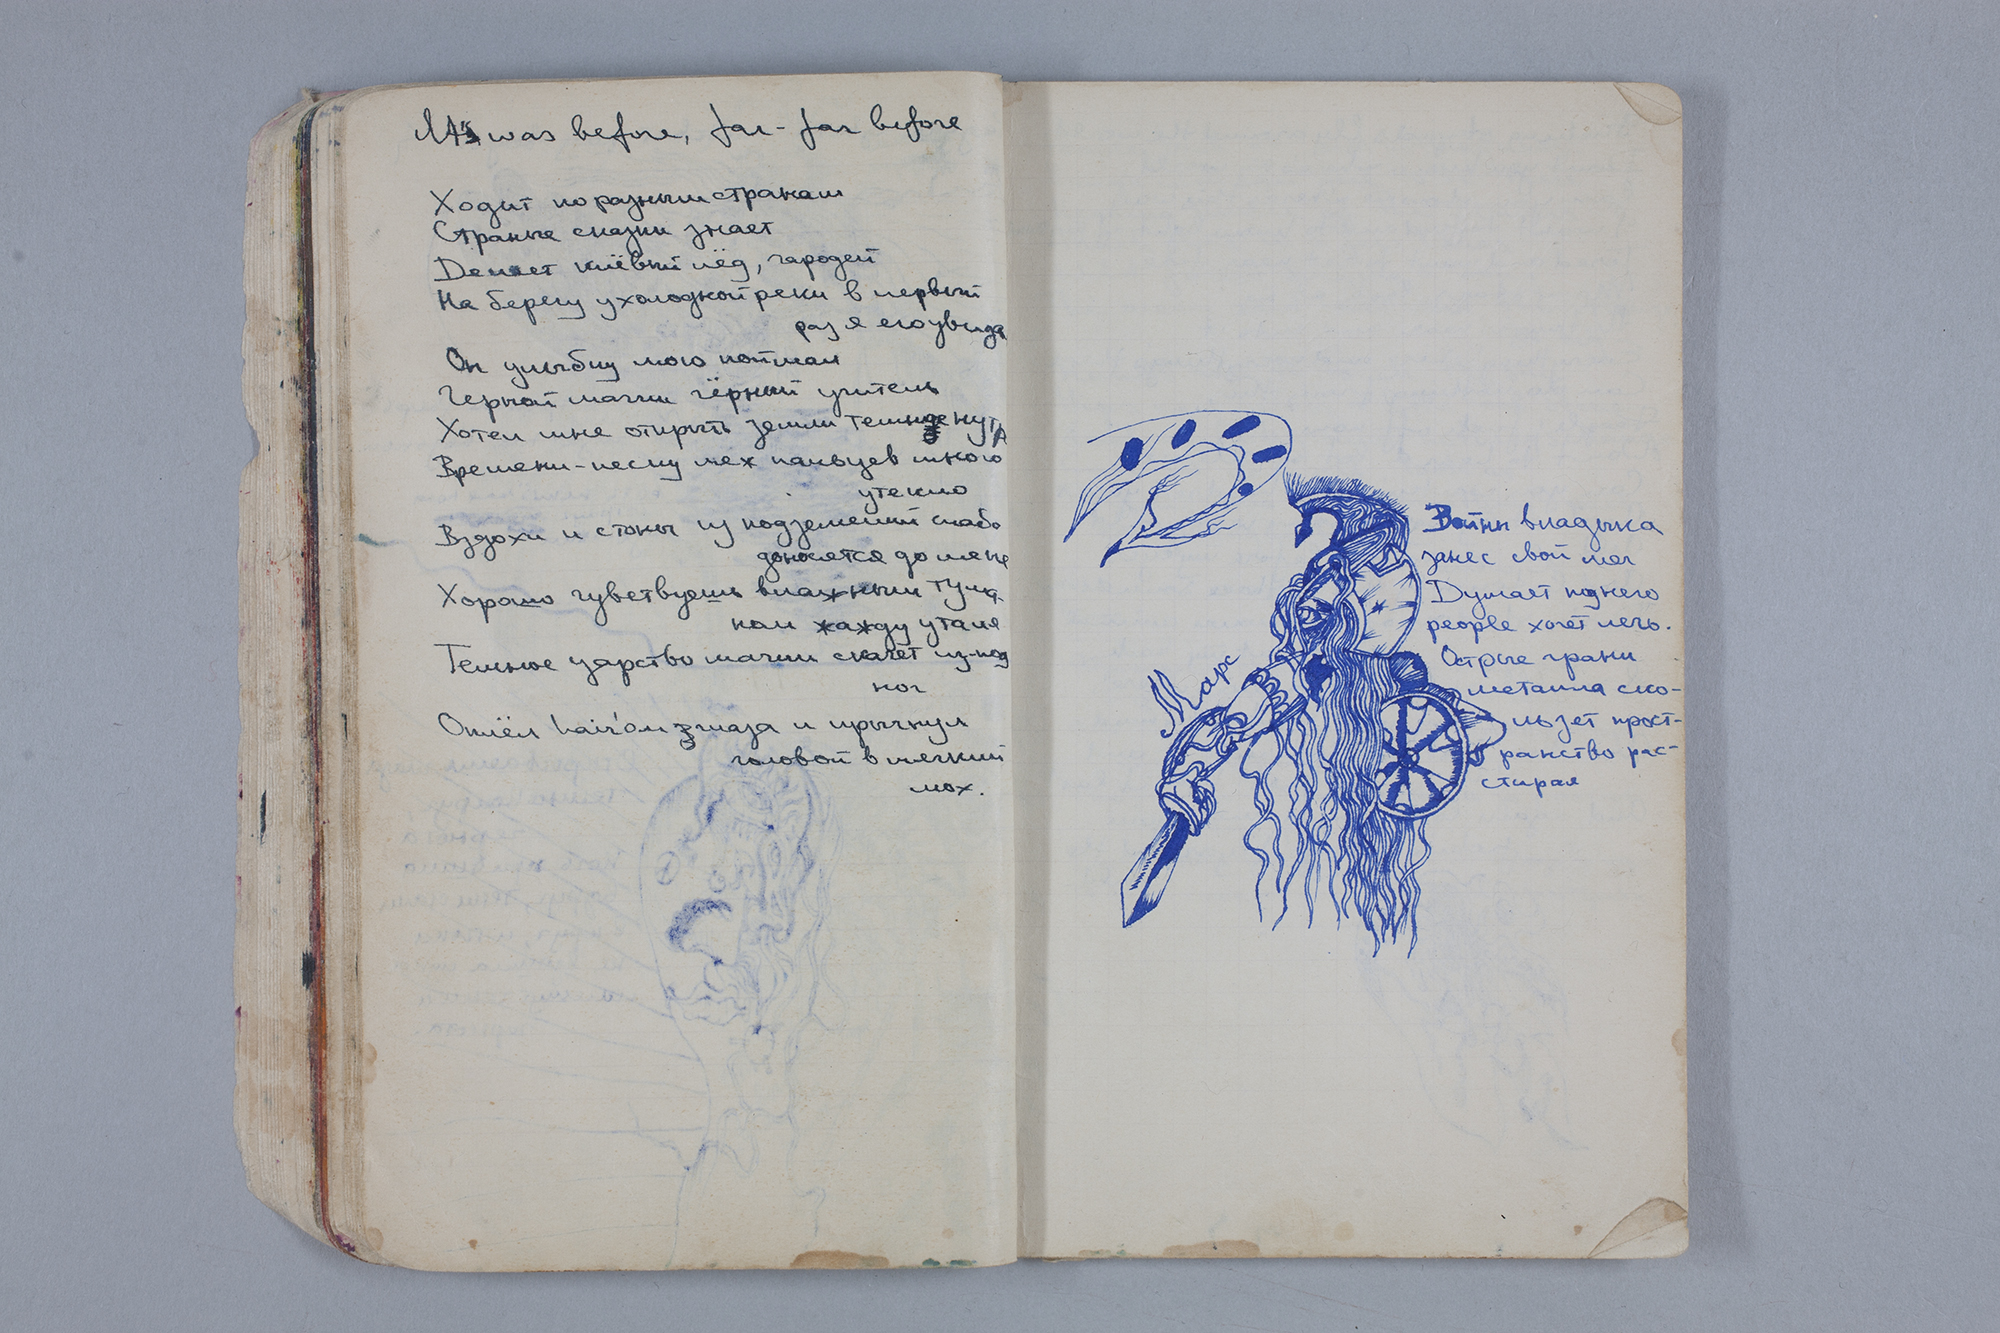 It's was before, far-far before
Ходит по разным странам
Страные сказки знает
Делает клёвый лёд, чародей
На берегу у холодной реки в первый
раз я его увида
Он улыбку мою поймал
Черной магии чёрный учитель
Хотел мне открыть земли темные
Времени-песку меж пальцев много
утекло
Вздохи и стоны из подземелий слабо
доносятся до меня
Хорошо чувствуешь влажным тума-
ном жажду утоля
Темное царство магии скачет из-под
ног
Отвёл hair'ом глаза и прыгнул
головой в мягкий
мох.
Марс
Войны владыка
занес свой меч
Думает под него
people хочет лечь.
Острые грани
металла ско-
льзет прост-
ранство рас-
стирая